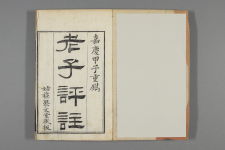 嘉慶甲子重鐫
老子評註
姑蘇聚文堂藏板